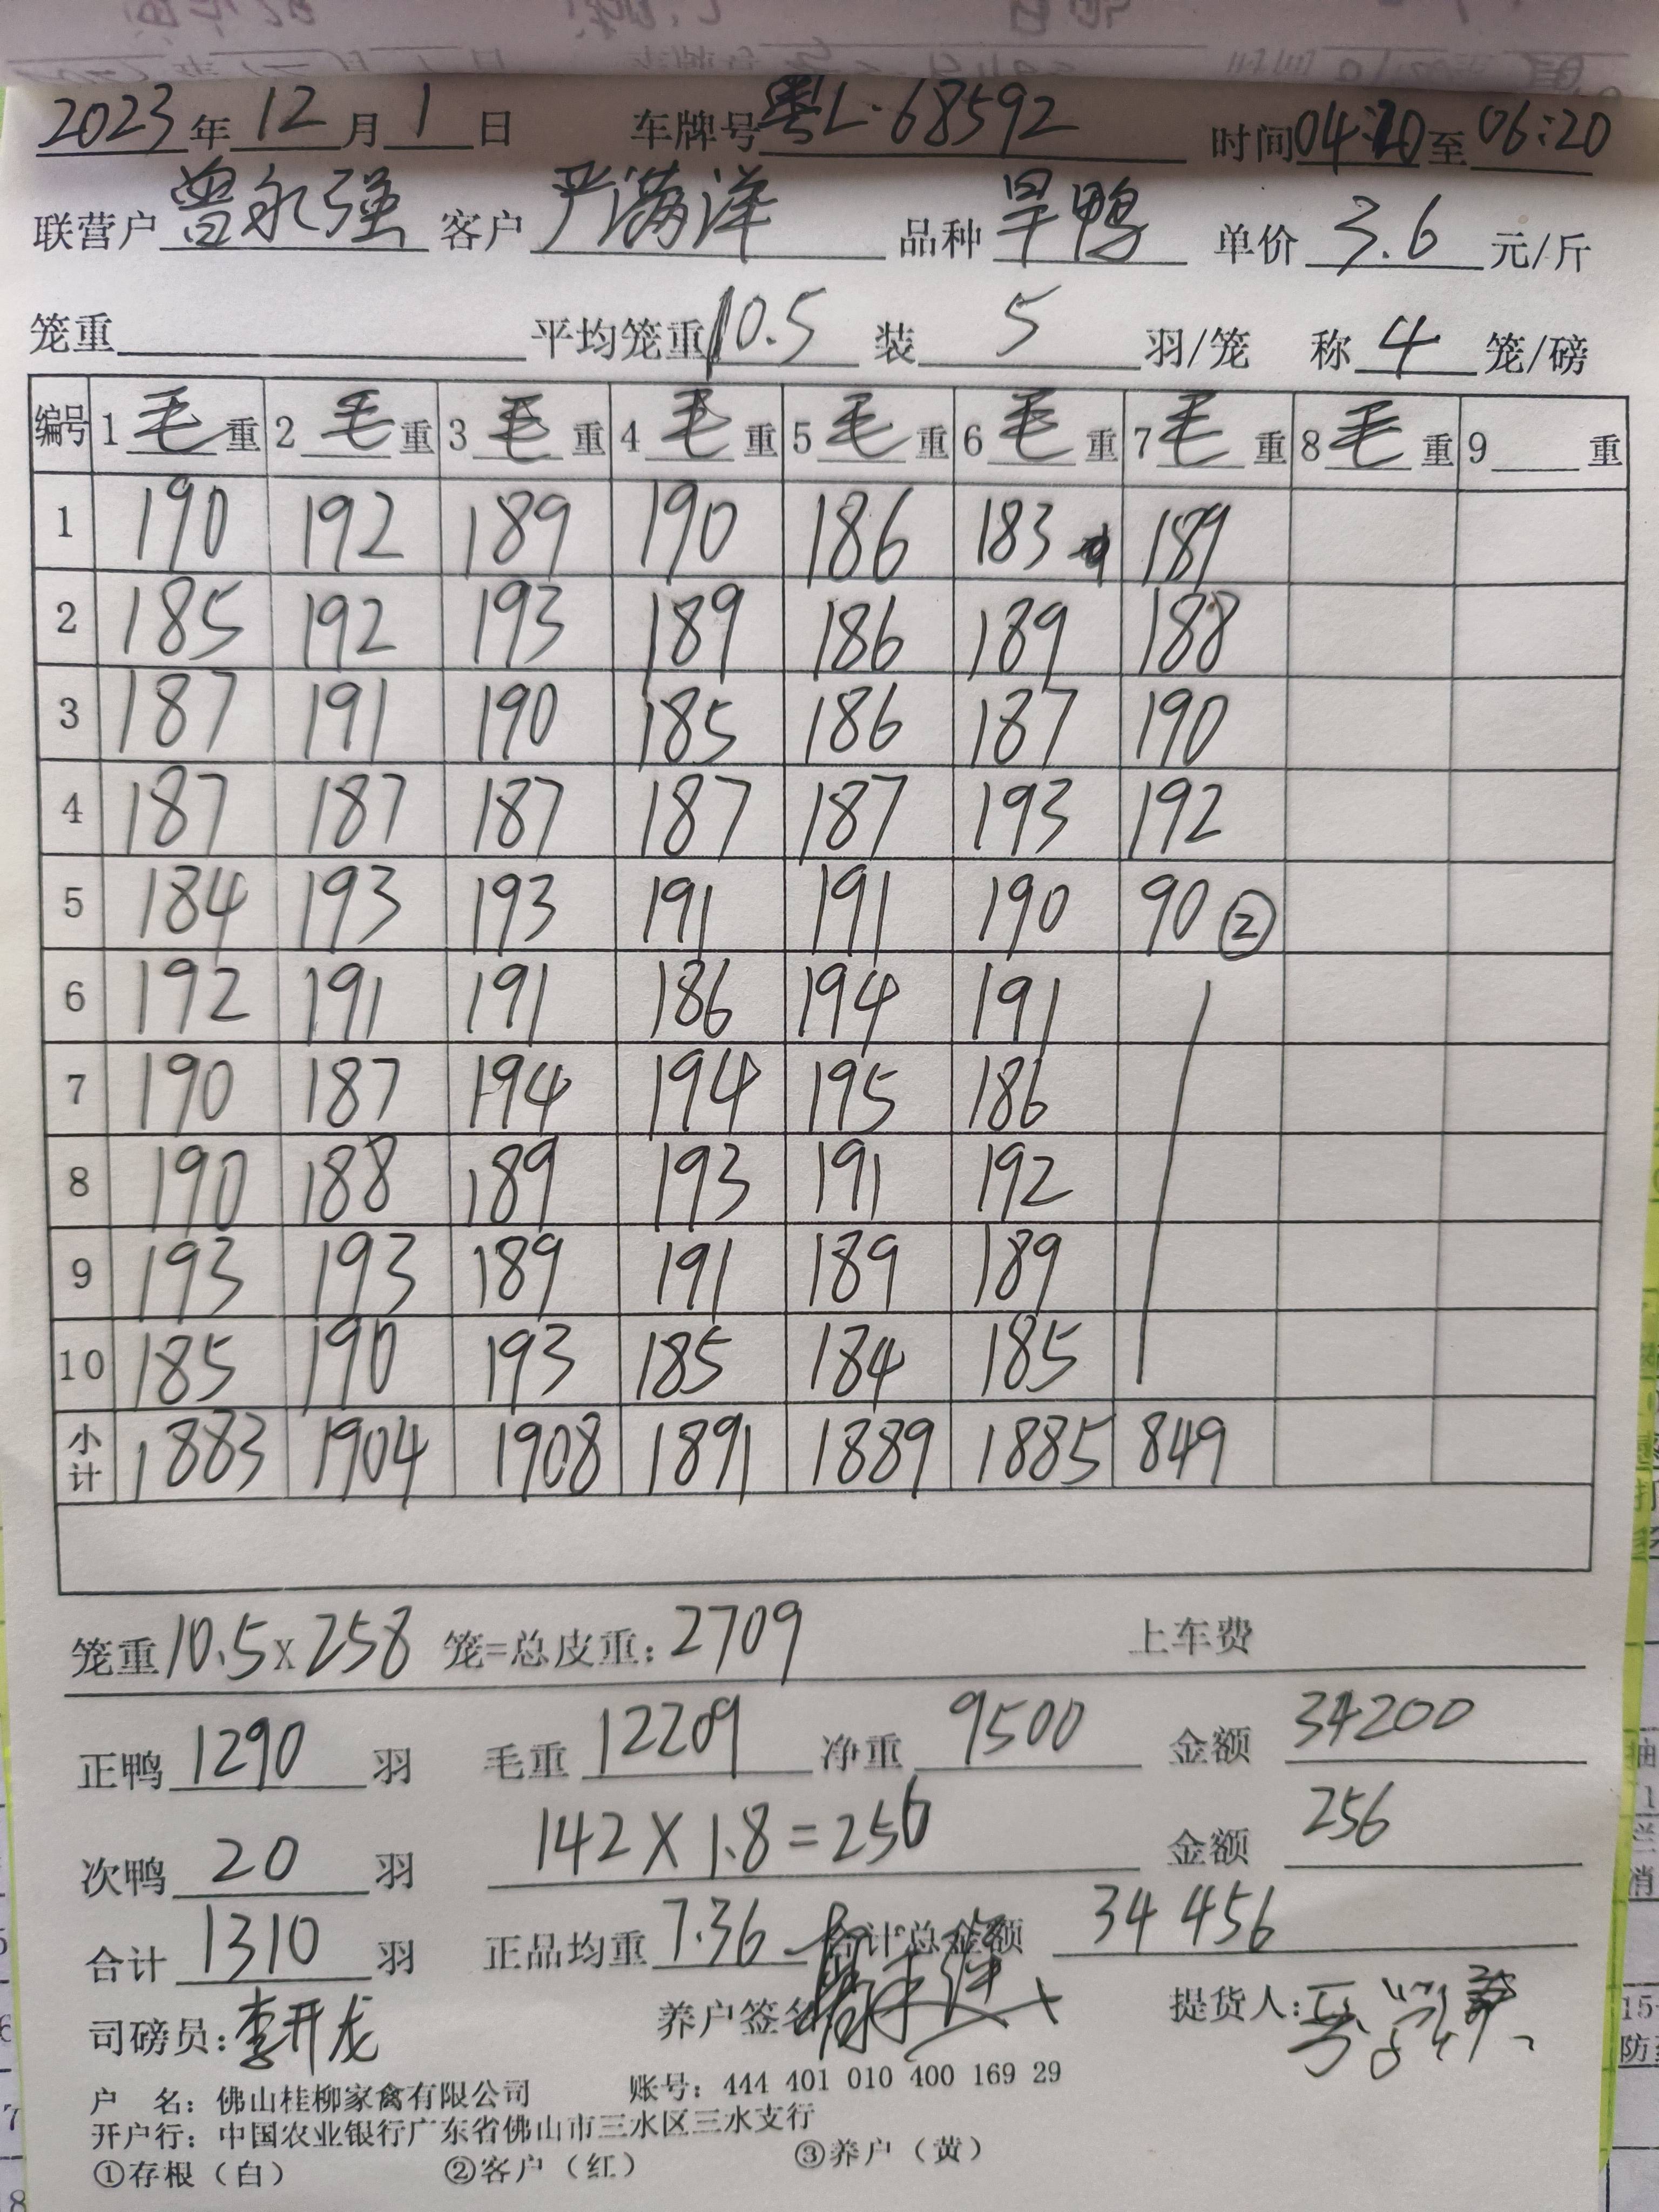 2023年12月1日 车牌号粤L·68592 时间04:20至06:20
联营户曾永强 客户严满洋 品种旱鸭 单价3.6元/斤
笼重 平均笼重10.5 装5羽/笼 称4笼/磅
编号 1毛重 2毛重 3毛重 4毛重 5毛重 6毛重 7毛重 8毛重 9重
1 190 192 189 190 186 183 189
2 185 192 193 189 186 189 188
3 187 191 190 185 186 187 190
4 187 187 187 187 187 193 192
5 184 193 193 191 191 190 90②
6 192 191 191 186 194 191
7 190 187 194 194 195 186
8 190 188 189 193 191 192
9 193 193 189 191 189 189
10 185 190 193 185 184 185
小计 1883 1904 1908 1891 1889 1885 849
笼重10.5×258笼=总皮重:2709 上车费
正鸭1290羽 毛重12209 净重9500 金额34200
次鸭20羽 142×1.8=256 金额256
合计1310羽 正品均重7.36 合计总金额34456
司磅员:李开龙 养户签名 提货人:
户 名:佛山桂柳家禽有限公司 账号:444 401 010 400 169 29
开户行:中国农业银行广东省佛山市三水区三水支行
①存根(白) ②客户(红) ③养户(黄)